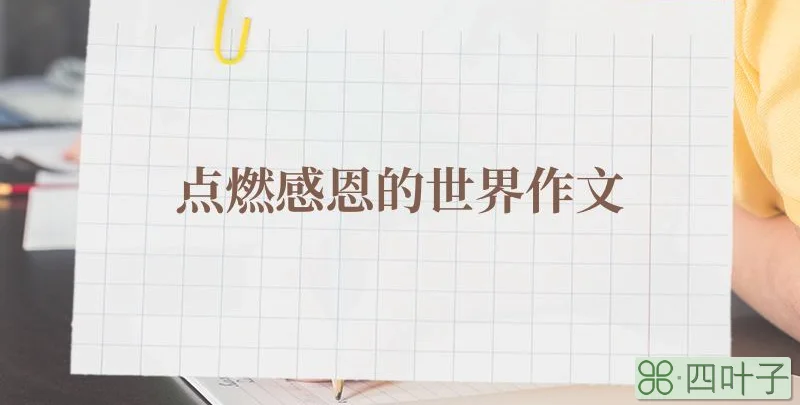 点燃感恩的世界作文
四叶子